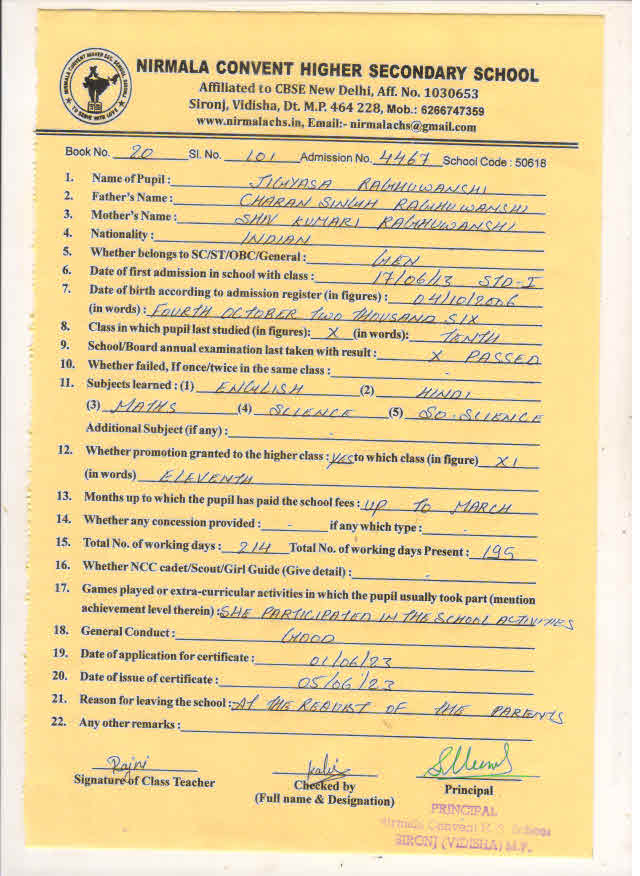 NIRMALA CONVENT HIGHER SECONDARY SCHOOL
Affiliated to CBSE New Delhi, Aff. No. 1030653
Sironj, Vidisha, Dt. M.P. 464 228, Mob.: 6266747359
www.nirmalachs.in, Email:- nirmalachs@gmail.com
NIRMALA CONVENT HIGHER SEC. SCHOOL, SIRONJ
TO SERVE WITH LOVE
Book No. 20 Sl. No. 101 Admission No. 4467 School Code : 50618
1. Name of Pupil : JIGYASA RAGHUWANSHI
2. Father's Name : CHARAN SINGH RAGHUWANSHI
3. Mother's Name : SHIV KUMARI RAGHUWANSHI
4. Nationality : INDIAN
5. Whether belongs to SC/ST/OBC/General : GEN
6. Date of first admission in school with class : 17/06/13 STD-I
7. Date of birth according to admission register (in figures) : 04/10/2006
(in words) : FOURTH OCTOBER TWO THOUSAND SIX
8. Class in which pupil last studied (in figures): X (in words): TENTH
9. School/Board annual examination last taken with result : X PASSED
10. Whether failed, If once/twice in the same class : -
11. Subjects learned : (1) ENGLISH (2) HINDI
(3) MATHS (4) SCIENCE (5) SO-SCIENCE
Additional Subject (if any) :
12. Whether promotion granted to the higher class : YES to which class (in figure) XI
(in words) ELEVENTH
13. Months up to which the pupil has paid the school fees : UP TO MARCH
14. Whether any concession provided : - if any which type : -
15. Total No. of working days : 214 Total No. of working days Present : 195
16. Whether NCC cadet/Scout/Girl Guide (Give detail) : -
17. Games played or extra-curricular activities in which the pupil usually took part (mention
achievement level therein) : SHE PARTICIPATED IN THE SCHOOL ACTIVITIES
18. General Conduct : GOOD
19. Date of application for certificate : 01/06/23
20. Date of issue of certificate : 05/06/23
21. Reason for leaving the school :- AT THE REQUIST OF THE PARENTS
22. Any other remarks :
Rajni
Signature of Class Teacher
Checked by
(Full name & Designation)
Principal
PRINCIPAL
Nirmala Convent H. S. School
SIRONJ (VIDISHA) M.P.